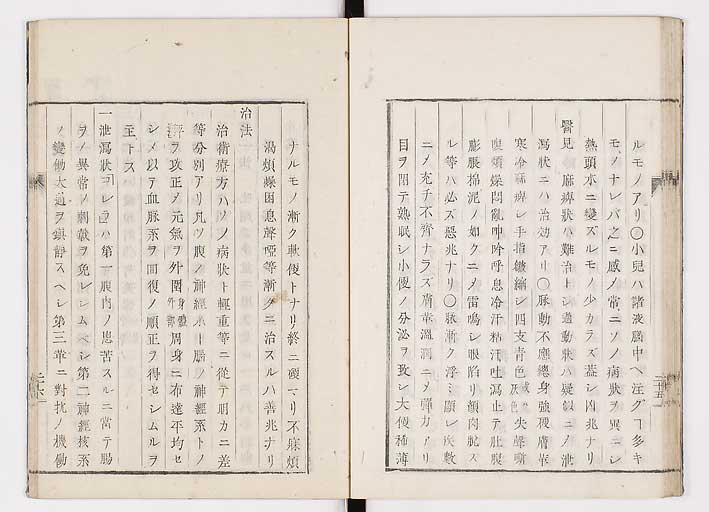 ルモノアリ○小兒ハ諸液腦中ヘ注グヿ多キ
モノナレバ之ニ感ノ常ニソノ病狀ヲ異ニシ
熱頭水ニ變ズルモノ少カラズ蓋シ凶兆ナリ
醫見 麻痺狀ハ難治トシ運動狀ハ疑似ニメ泄
瀉狀ニハ治効アリ○脉動不應總身強硬膚
寒冷麻痺シ手指皺縮シ四支青色 或ハ 灰色 失聲嘶
嗅煩燥悶亂呻吟呼息冷汗粘汗吐瀉止テ肚腹
膨脹棉泥ノ如クニメ雷鳴シ眼陷リ顏肉脫ス
ル等ハ必ズ惡兆ナリ○脉漸ク浮ミ顯レ疾數
ニメ充チ不齊ナラズ膚華溫潤ニメ彈力アリ
目ヲ閉テ熟眠シ小便ノ分泌ヲ致シ大便稀薄
二十五
ナルモノ漸ク軟便トナリ終ニ硬マリ不麻煩
渴煩燥困息聲啞等漸クニ治スルハ善兆ナリ
治法
治術療方ハソノ病狀ト輕重等ニ從テ明カニ差
等分別アリ凡ソ腹ノ神經系ト腦ノ神經系トノ
平ヲ攻正メ元氣ヲ外圍 身體外部 周身ニ布達平均セ
シメ以テ血脉系ヲ回復ノ順正ヲ得セシムルヲ
主トス
一泄瀉狀「コレラ」ハ第一腹內ノ患苦スルニ當テ腸
ヲノ異常ノ刺戟ヲ免レシムベシ第二神經核系
ノ變動太過ヲ鎮靜スベシ第三華ニ對抗ノ機働
二十六